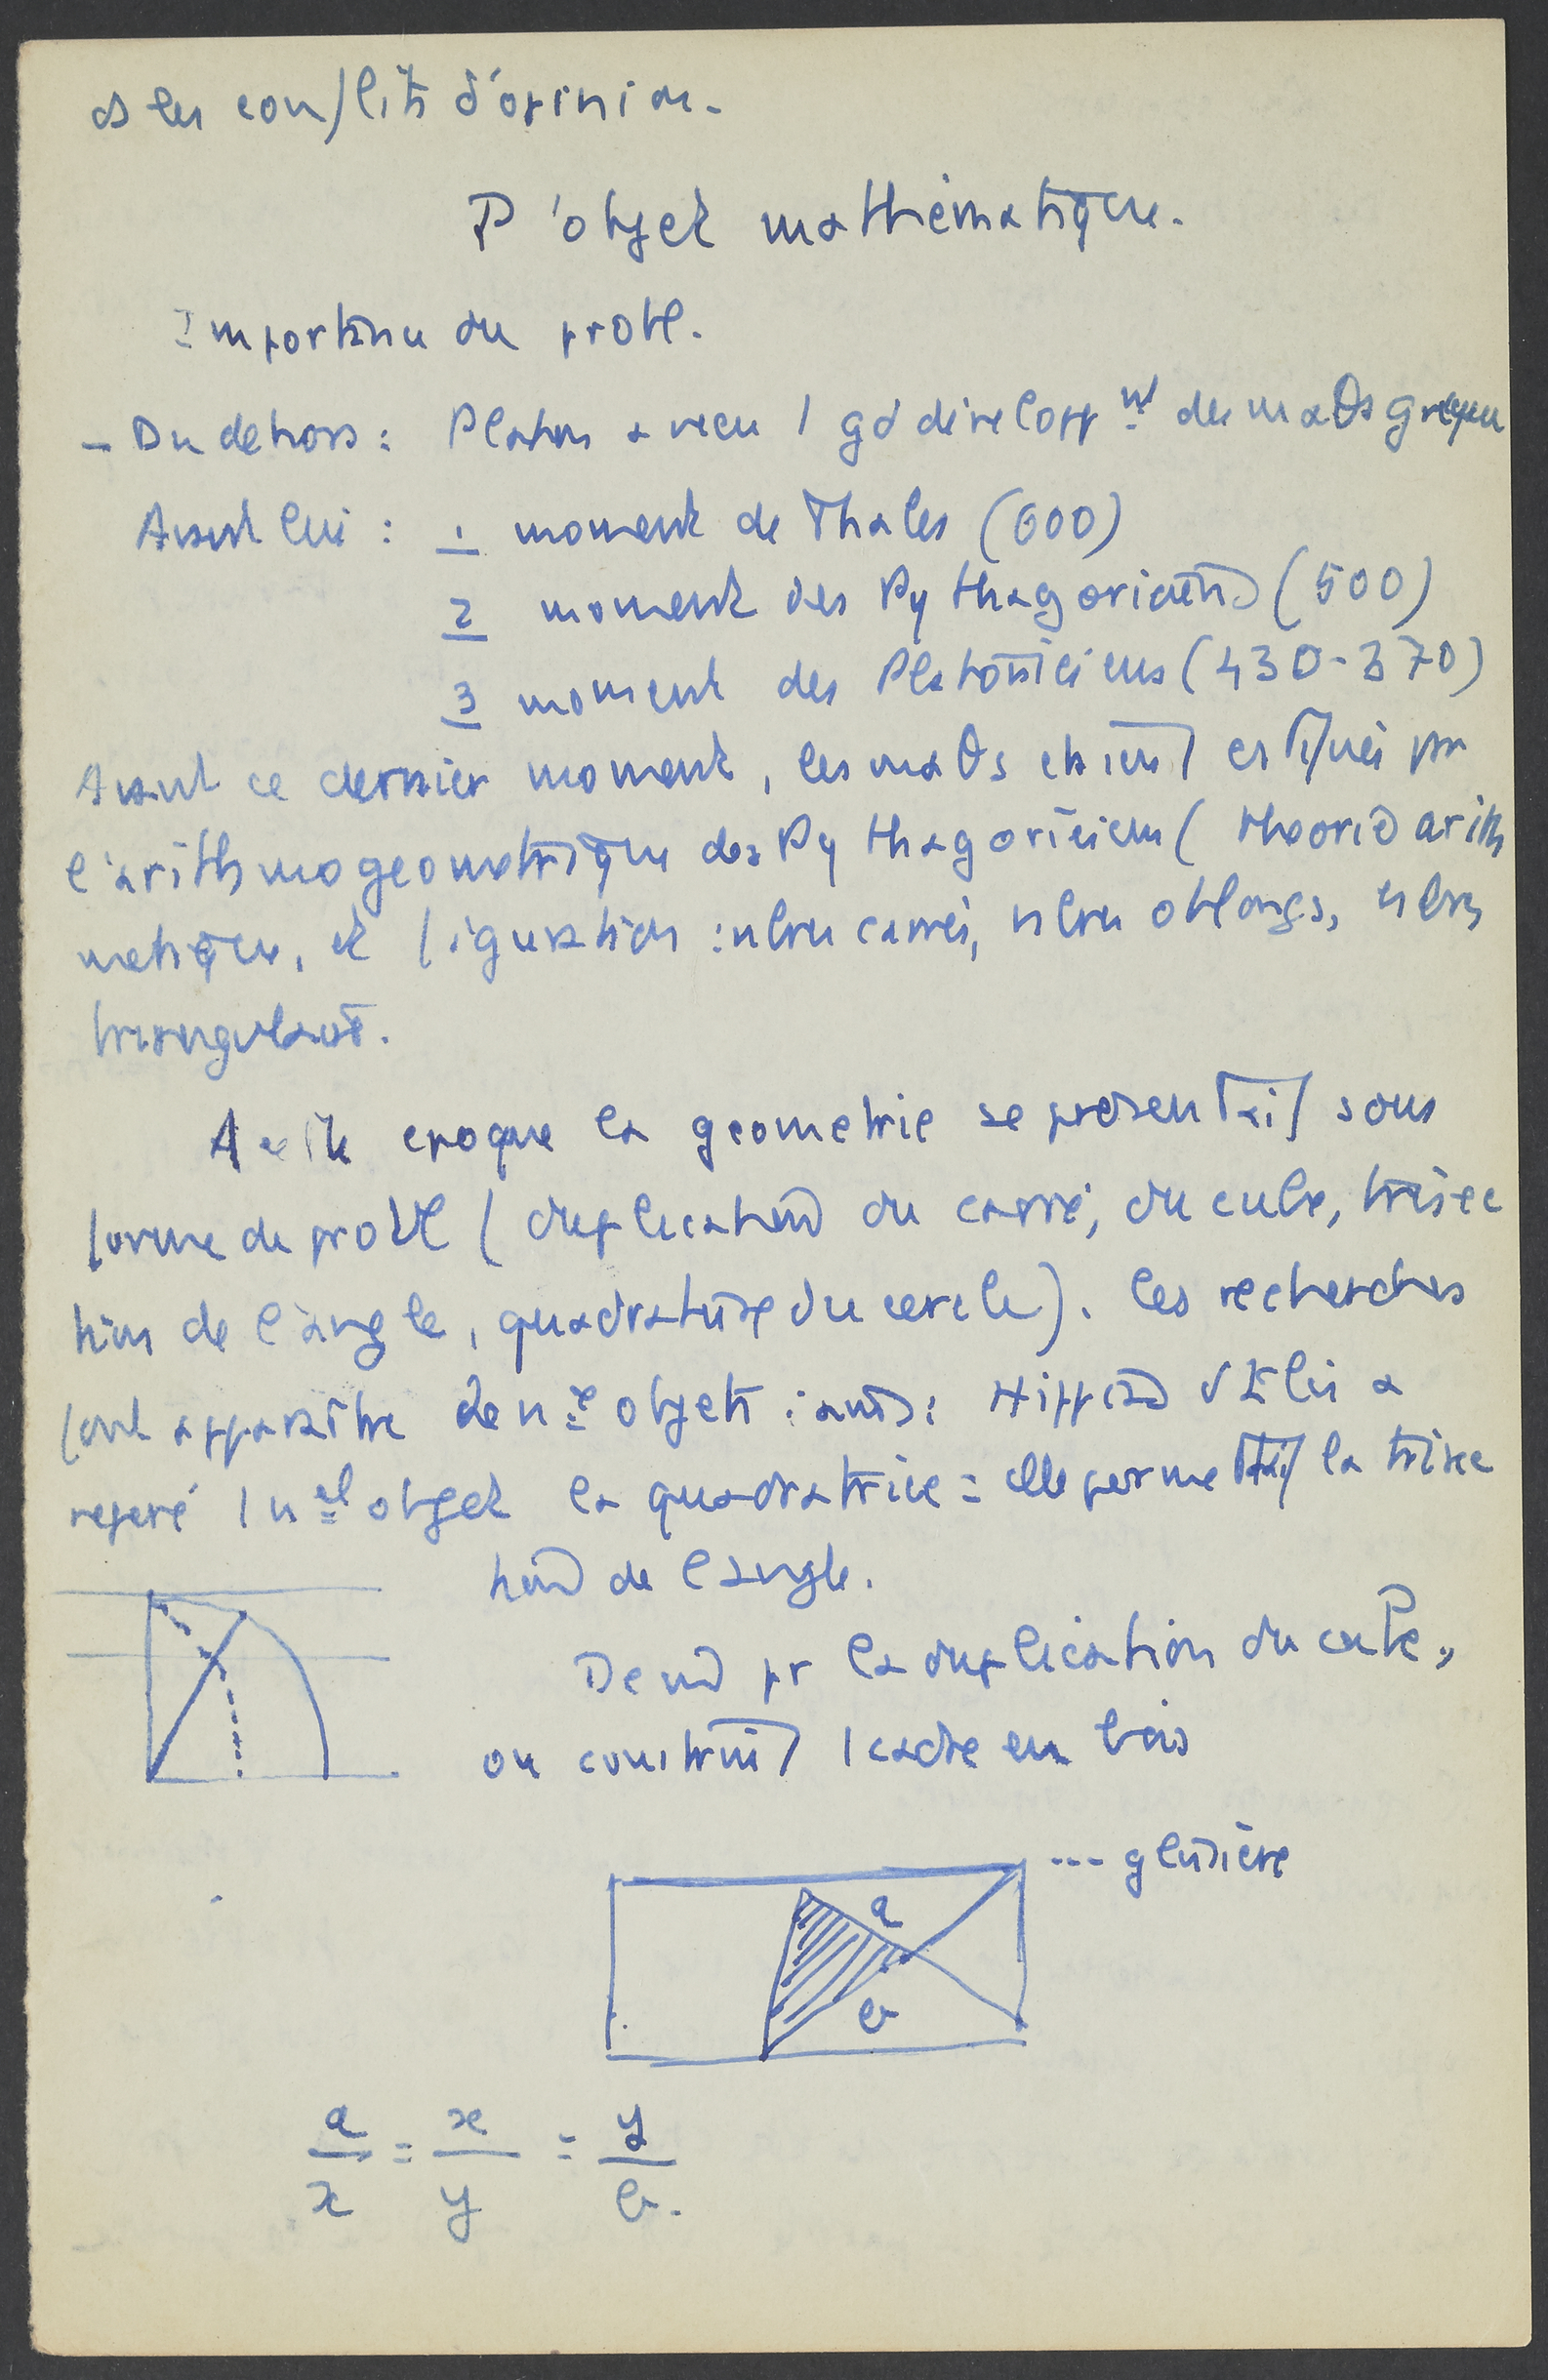 ds les conflits d'opinion.
l'objet mathématique.
Importance du probl.
- Du dehors : Platon a vécu 1 gd développmt des maθs grecques
Avant lui : 1 moment de Thales (600)
2 moment des Pythagoriciens (500)
3 moment des Platoniciens (430-370)
Avant ce dernier moment, les maθs étaient par
l'arithmogeometrique des Pythagoriciens (theorie arith
metique, et figuration : nbres carrés, nbres oblongs, nbres
triangulaires.
A cette epoque la geometrie se presentait sous
forme de probl (duplication du carré, du cube, trisec
tion de l'angle, quadrature du cercle). Les recherches
font apparaître de nx objets : ainsi : Hippias d'Elis a
repéré 1 nel objet la quadratrice : elle permettait la trisec
tion de l'angle.
De m pr la duplication du cube,
on construit 1 cadre en bois
--- glissière
a
b
a/x = x/y = y/b.